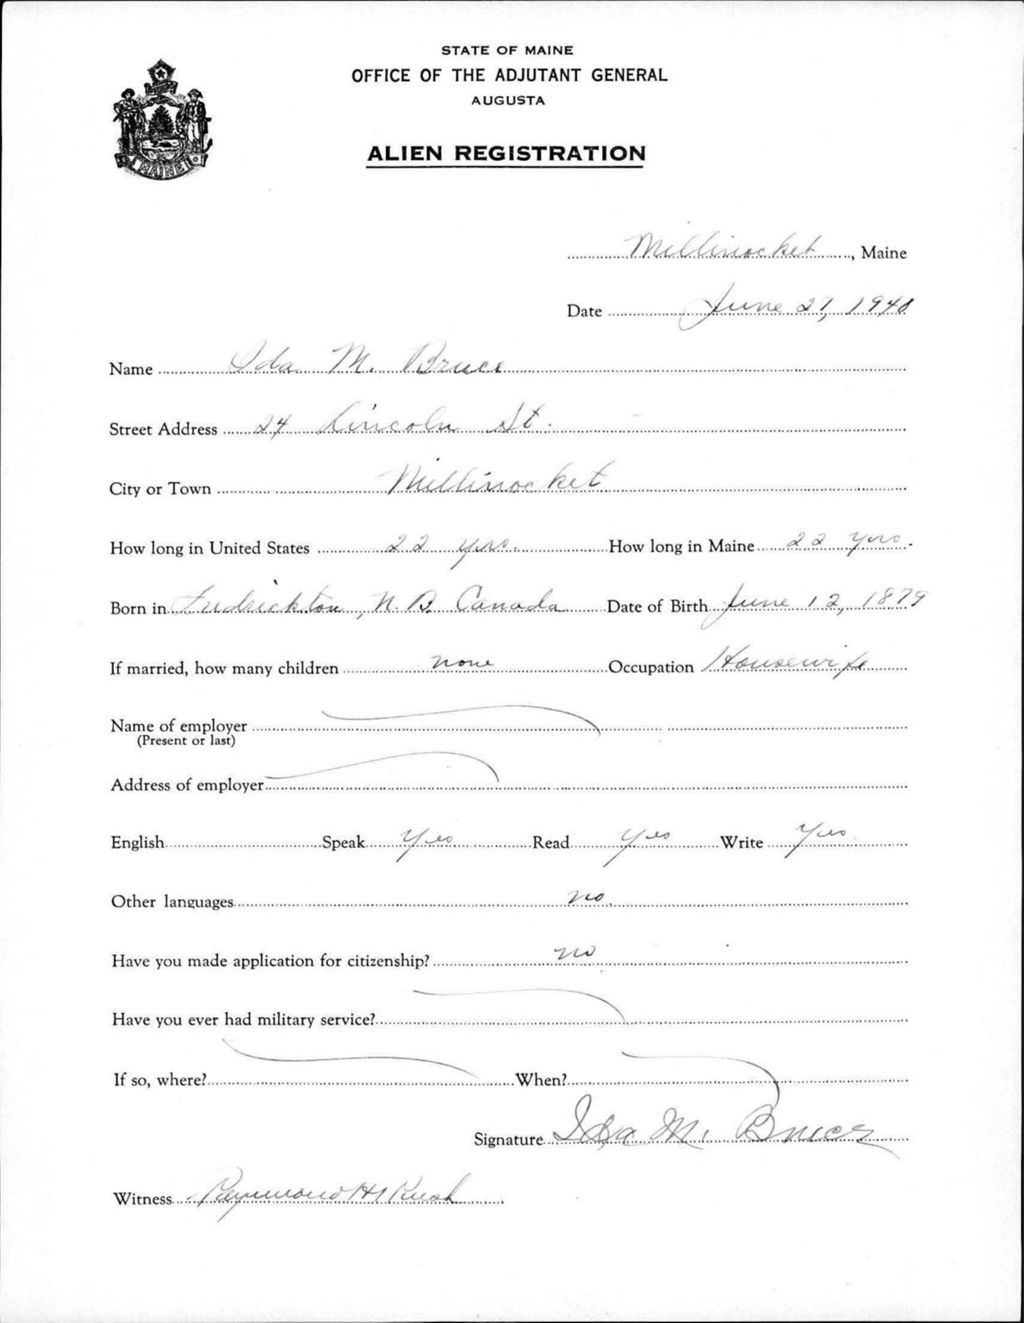 STATE OF MAINE
OFFICE OF THE ADJUTANT GENERAL
AUGUSTA
MAINE
ALIEN REGISTRATION
Millinocket, Maine
Date June 27, 1940
Name Ida M. Bruce
Street Address 24 Lincoln St.
City or Town Millinocket
How long in United States 22 yrs. How long in Maine 22 yrs.
Born in Fredrickton, N.B. Canada Date of Birth June 12, 1879
If married, how many children none Occupation Housewife
Name of employer
(Present or last)
Address of employer
English Speak Yes Read Yes Write Yes
Other languages no.
Have you made application for citizenship? no
Have you ever had military service?
If so, where? When?
Signature Ida M. Bruce
Witness Raymond H. Rush